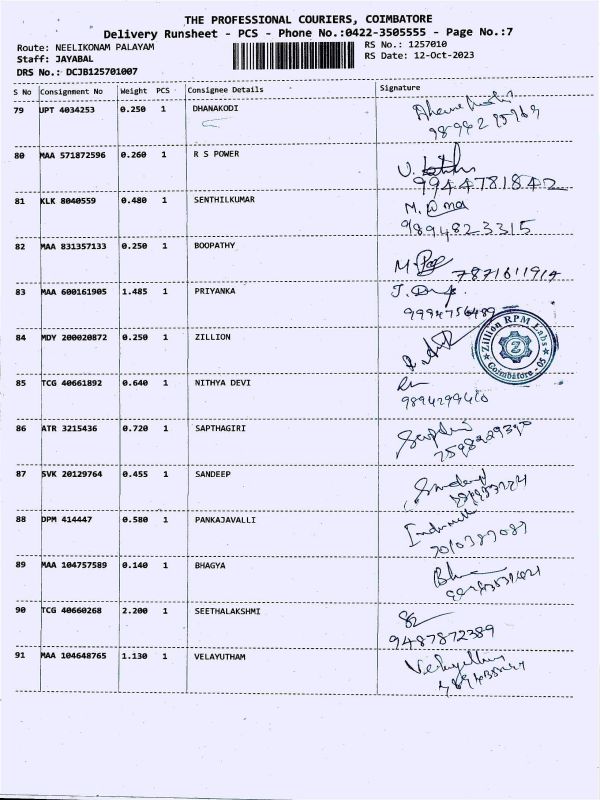 THE PROFESSIONAL COURIERS, COIMBATORE
Delivery Runsheet - PCS - Phone No.:0422-3505555 - Page No.:7
Route: NEELIKONAM PALAYAM RS No.: 1257010
Staff: JAYABAL RS Date: 12-Oct-2023
DRS No.: DCJB125701007
S No Consignment No Weight PCS Consignee Details Signature
79 UPT 4034253 0.250 1 DHANAKODI
80 MAA 571872596 0.260 1 R S POWER
9944781842
81 KLK 8040559 0.480 1 SENTHILKUMAR
9894823315
82 MAA 831357133 0.250 1 BOOPATHY
7871611914
83 MAA 600161905 1.485 1 PRIYANKA
9994756489
84 MDY 200020872 0.250 1 ZILLION
Zillion RPM Labs
Z
Coimbatore - 05
85 TCG 40661892 0.640 1 NITHYA DEVI
86 ATR 3215436 0.720 1 SAPTHAGIRI
87 SVK 20129764 0.455 1 SANDEEP
88 DPM 414447 0.580 1 PANKAJAVALLI
7010387087
89 MAA 104757589 0.140 1 BHAGYA
90 TCG 40660268 2.200 1 SEETHALAKSHMI
9487872389
91 MAA 104648765 1.130 1 VELAYUTHAM